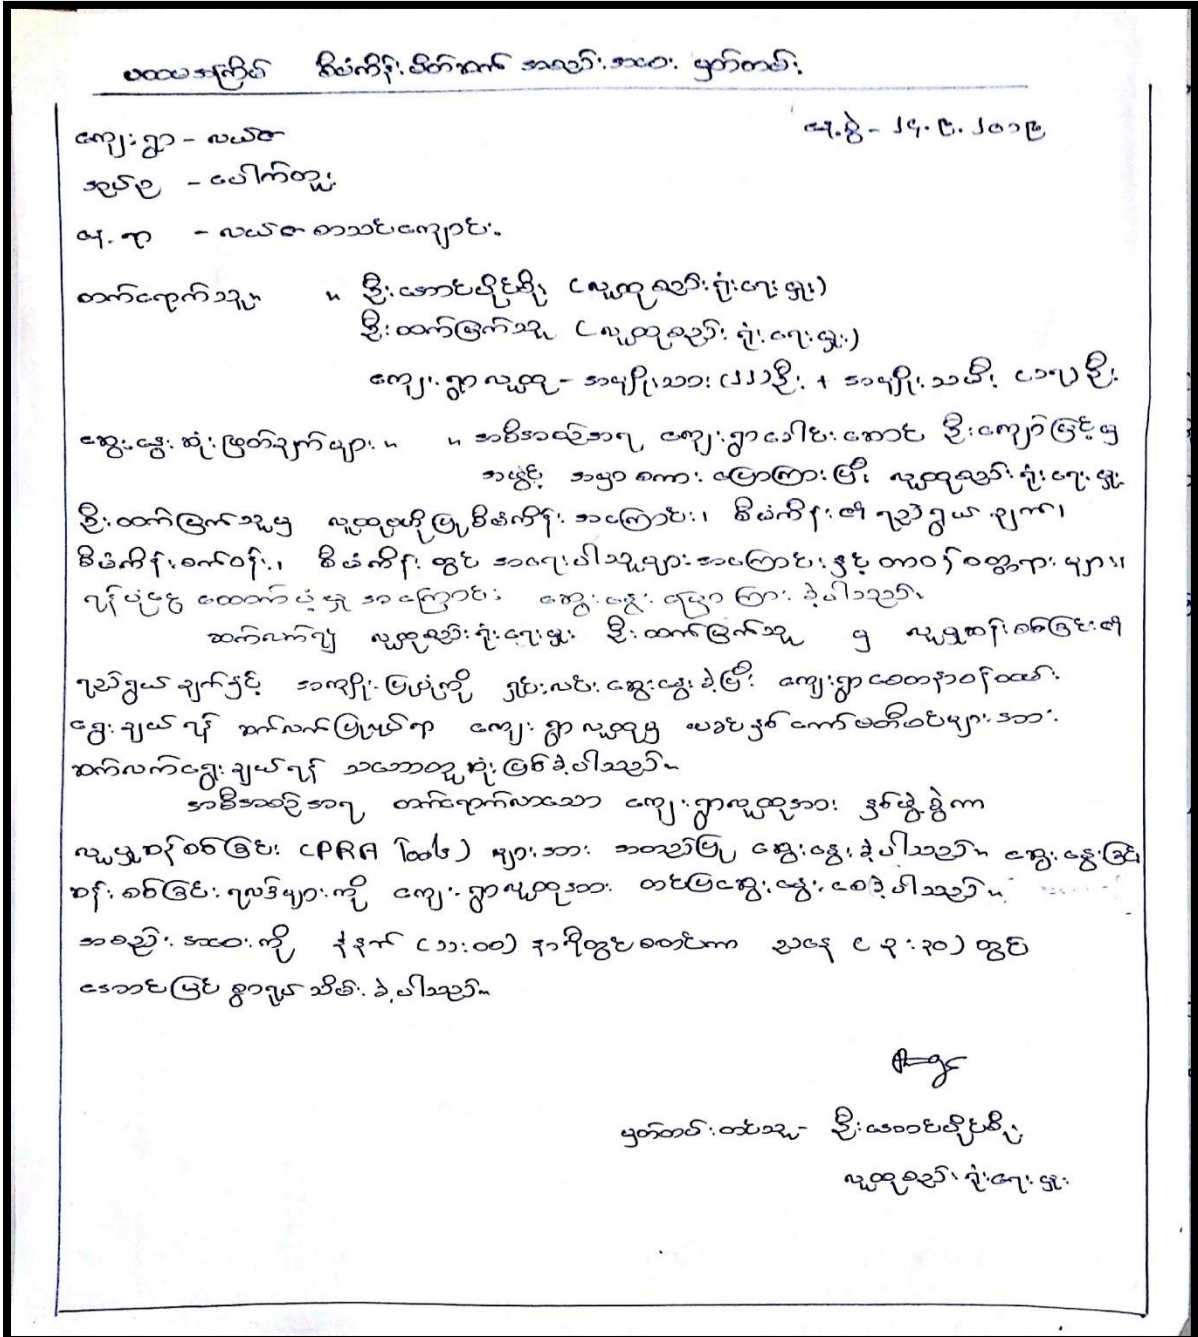 ပထမအကြိမ် စီမံကိန်းမိတ်ဆက် အစည်းအဝေး မှတ်တမ်း
နေ့စွဲ - ၂၄.၉.၂၀၁၉
ကျေးရွာ - လယ်ဇ
အုပ်စု - ပေါက်တူး
နေရာ - လယ်ဇ စာသင်ကျောင်း
တက်ရောက်သူ။ ။ ဦးအောင်ပိုင်စိုး (လူထုစည်းရုံးရေးမှူး)
ဦးထက်မြက်သူ (လူထုစည်းရုံးရေးမှူး)
ကျေးရွာလူထု - အမျိုးသား (၂၂)ဦး + အမျိုးသမီး (၁၅)ဦး
ဆွေးနွေးဆုံးဖြတ်ချက်များ။ ။ အစီအစဉ်အရ ကျေးရွာခေါင်းဆောင် ဦးကျော်မြင့်မှ
အဖွင့် အမှာစကား ပြောကြားပြီး လူထုစည်းရုံးရေးမှူး
ဦးထက်မြက်သူမှ လူထုဗဟိုပြုစီမံကိန်း အကြောင်း၊ စီမံကိန်း၏ ရည်ရွယ်ချက်၊
စီမံကိန်းစက်ဝန်း၊ စီမံကိန်းတွင် အရေးပါသူများအကြောင်းနှင့် တာဝန်ဝတ္တရားများ၊
ရန်ပုံငွေ ထောက်ပံ့မှုအကြောင်း ဆွေးနွေးပြောကြားခဲ့ပါသည်။
ဆက်လက်၍ လူထုစည်းရုံးရေးမှူး ဦးထက်မြက်သူ မှ လူမှုဆန်းစစ်ခြင်း၏
ရည်ရွယ်ချက်နှင့် အကျိုးပြုပုံကို ရှင်းလင်းဆွေးနွေးခဲ့ပြီး ကျေးရွာစေတနာ့ဝန်ထမ်း
ရွေးချယ်ရန် ဆက်လက်ပြုလုပ်ရာ ကျေးရွာလူထုမှ ယခင်နှစ်ကော်မတီဝင်များအား
ဆက်လက်ရွေးချယ်ရန် သဘောတူဆုံးဖြစ်ခဲ့ပါသည်။
အစီအစဉ်အရ တက်ရောက်လာသော ကျေးရွာလူထုအား နှစ်ဖွဲ့ခွဲကာ
လူမှုဆန်းစစ်ခြင်း (PRA Tools) များအား အတည်ပြု ဆွေးနွေးခဲ့ပါသည်။ ဆွေးနွေးခြင်း
ဆန်းစစ်ခြင်းရလဒ်များကို ကျေးရွာလူထုအား တင်ပြဆွေးနွေးစေခဲ့ပါသည်။
အစည်းအဝေးကို နံနက် (၁၁:၀၀) နာရီတွင်စတင်ကာ ညနေ ( ၃:၃၀) တွင်
အောင်မြင်စွာရုပ်သိမ်းခဲ့ပါသည်။
မှတ်တမ်းတင်သူ - ဦးအောင်ပိုင်စိုး
လူထုစည်းရုံးရေးမှူး